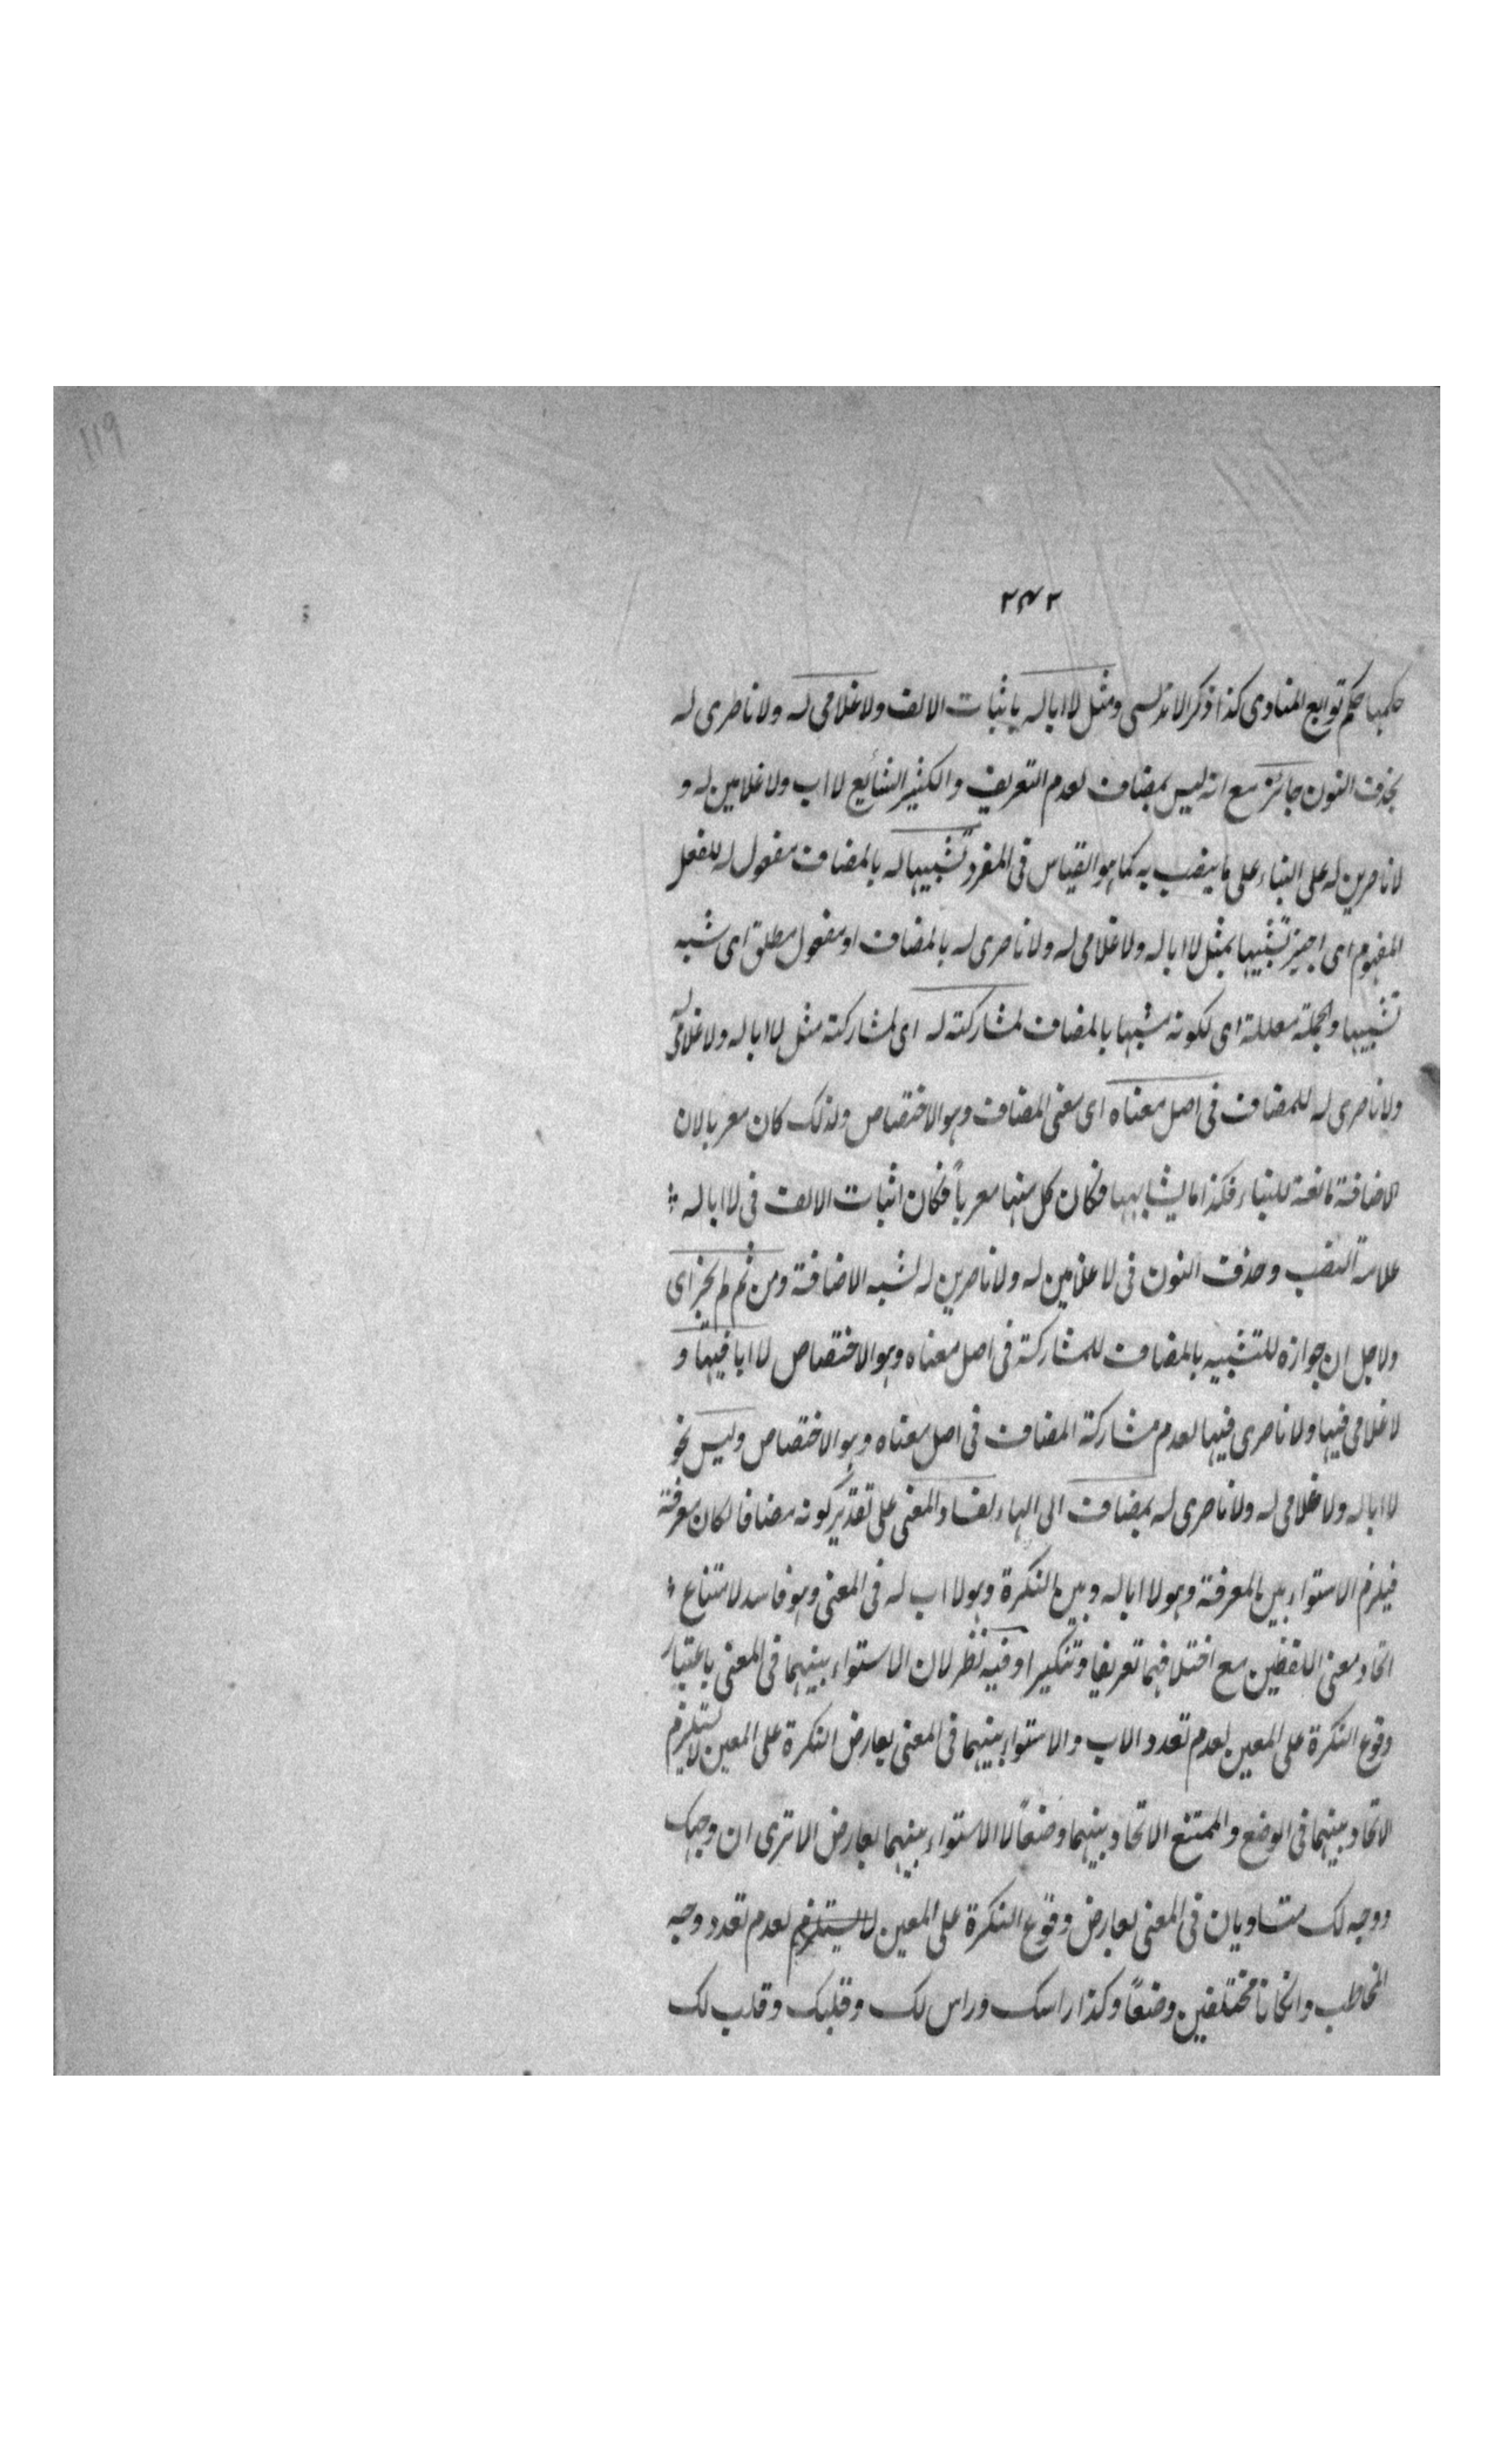 119
٢٤٢
حكمها حكم توابع المنادى كذا ذكر الاندلسى ومثل لا ابا له باثبات الالف ولا غلامى له ولا ناصرى له
بحذف النون جائز مع انه ليس بمضاف لعدم التعريف والكثير الشائع لا اب ولا غلامين له و
لا ناصرين له على البناء على ما ينصب به كما هو القياس فى المفرد تشبيها له بالمضاف مفعول له للفعل
المفهوم اى اجيز تشبيها بمثل لا ابا له ولا غلامى له ولا ناصرى له بالمضاف او مفعول مطلق اى شبه
تشبيها والجملة معللة اى لكونه مشبها بالمضاف لمشاركته له اى لمشاركته مثل لا ابا له ولا غلامى له
ولا ناصرى له للمضاف فى اصل معناه اى معنى المضاف وهو الاختصاص ولذلك كان معربا لان
الاضافة مانعة للبناء فكذا ما يشابهها فكان كل منها معرباً فكان اثبات الالف فى لا ابا له
علامة النصب وحذف النون فى لا غلامين له ولا ناصرين له لشبه الاضافة ومن ثم لم يجز اى
ولاجل ان جوازه للتشبيه بالمضاف للمشاركة فى اصل معناه وهو الاختصاص لا ابا فيها و
لا غلامى فيها ولا ناصرى فيها لعدم مشاركة المضاف فى اصل معناه وهو الاختصاص وليس نحو
لا ابا له ولا غلامى له ولا ناصرى له بمضاف الى الهاء لفساد المعنى على تقدير كونه مضافا لكان معرفة
فيلزم الاستواء بين المعرفة وهو لا ابا له وبين النكرة وهو لا اب له فى المعنى وهو فاسد لامتناع
اتحاد معنى اللفظين مع اختلافهما تعريفا وتنكيرا وفيه نظر لان الاستواء بينهما فى المعنى باعتبار
وقوع النكرة على المعين لعدم تعدد الاب والاستواء بينهما فى المعنى بعارض النكرة على المعين لا يستلزم
الاتحاد بينهما فى الوضع والممتنع الاتحاد بينهما وضعاً لا الاستواء بينهما بعارض الا ترى ان وجهك
ووجه لك متساويان فى المعنى بعارض وقوع النكرة على المعين لا يستلزم لعدم تعدد وجه
المخاطب وان كانا مختلفين وضعاً وكذا راسك وراس لك وقلبك وقلب لك